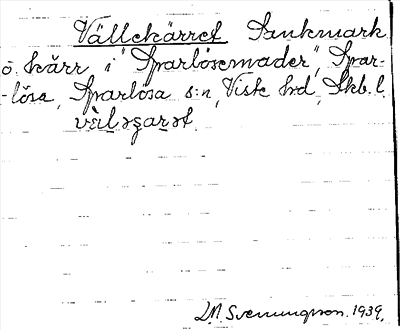 Vällekärret Sankmark
o. kärr i "Sparlösemader", Spar-
-lösa, Sparlösa s:n, Viste hrd, Skb. l.
L.M. Svenungsson. 1939.